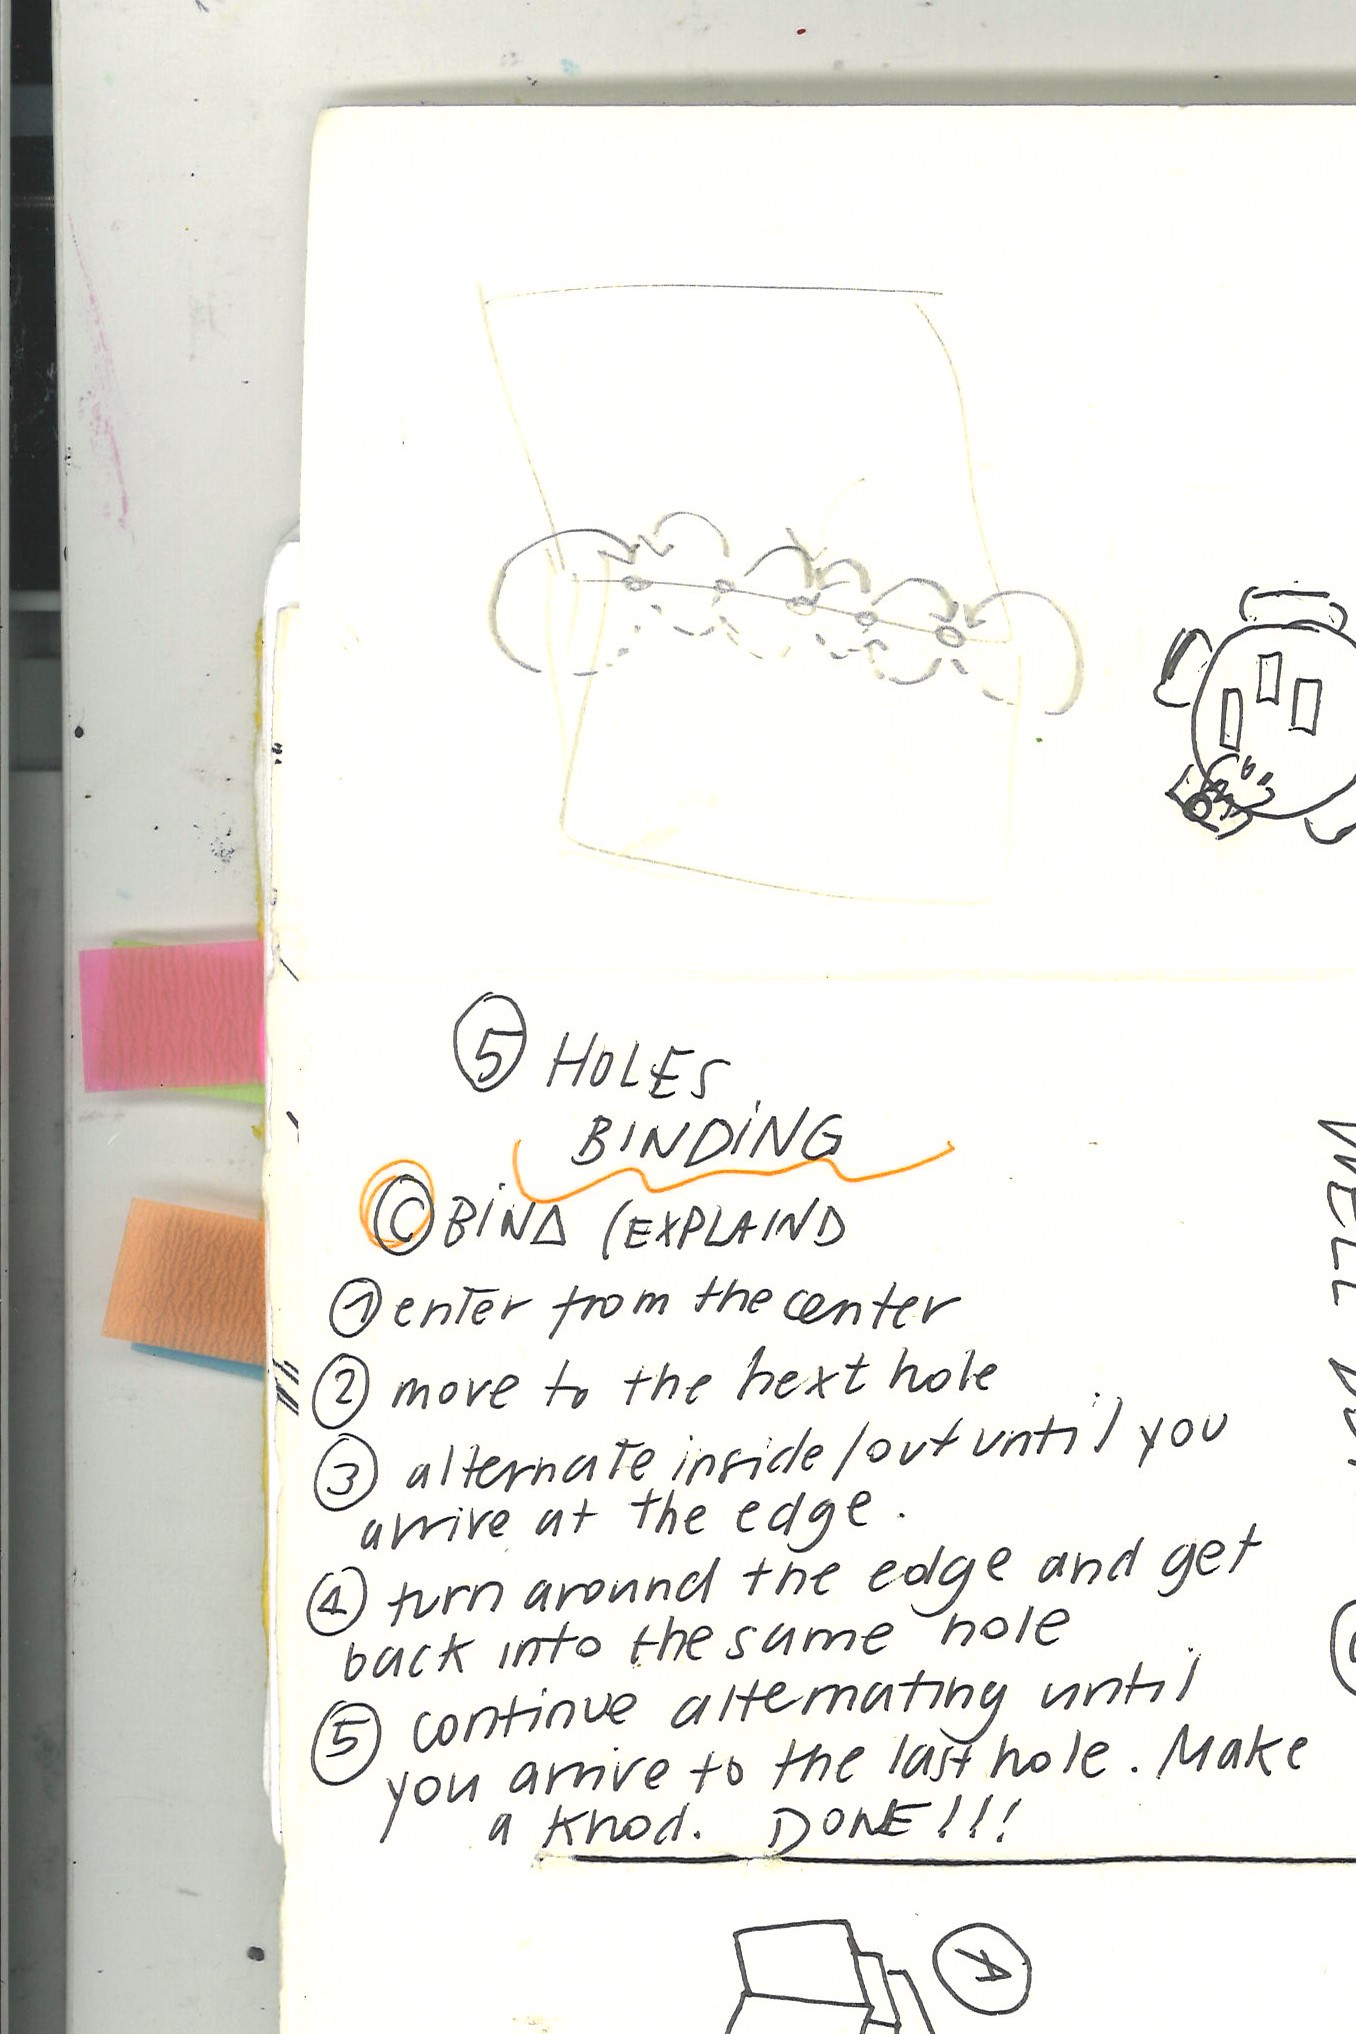 5 HOLES
BINDING
C BIND (EXPLAIND
1 enter from the center
2 move to the next hole
3 alternate inside/out until you
arrive at the edge.
4 turn around the edge and get
back into the same hole
5 continue alternating until
you arrive to the last hole. Make
a knod. DONE!!!
WELL